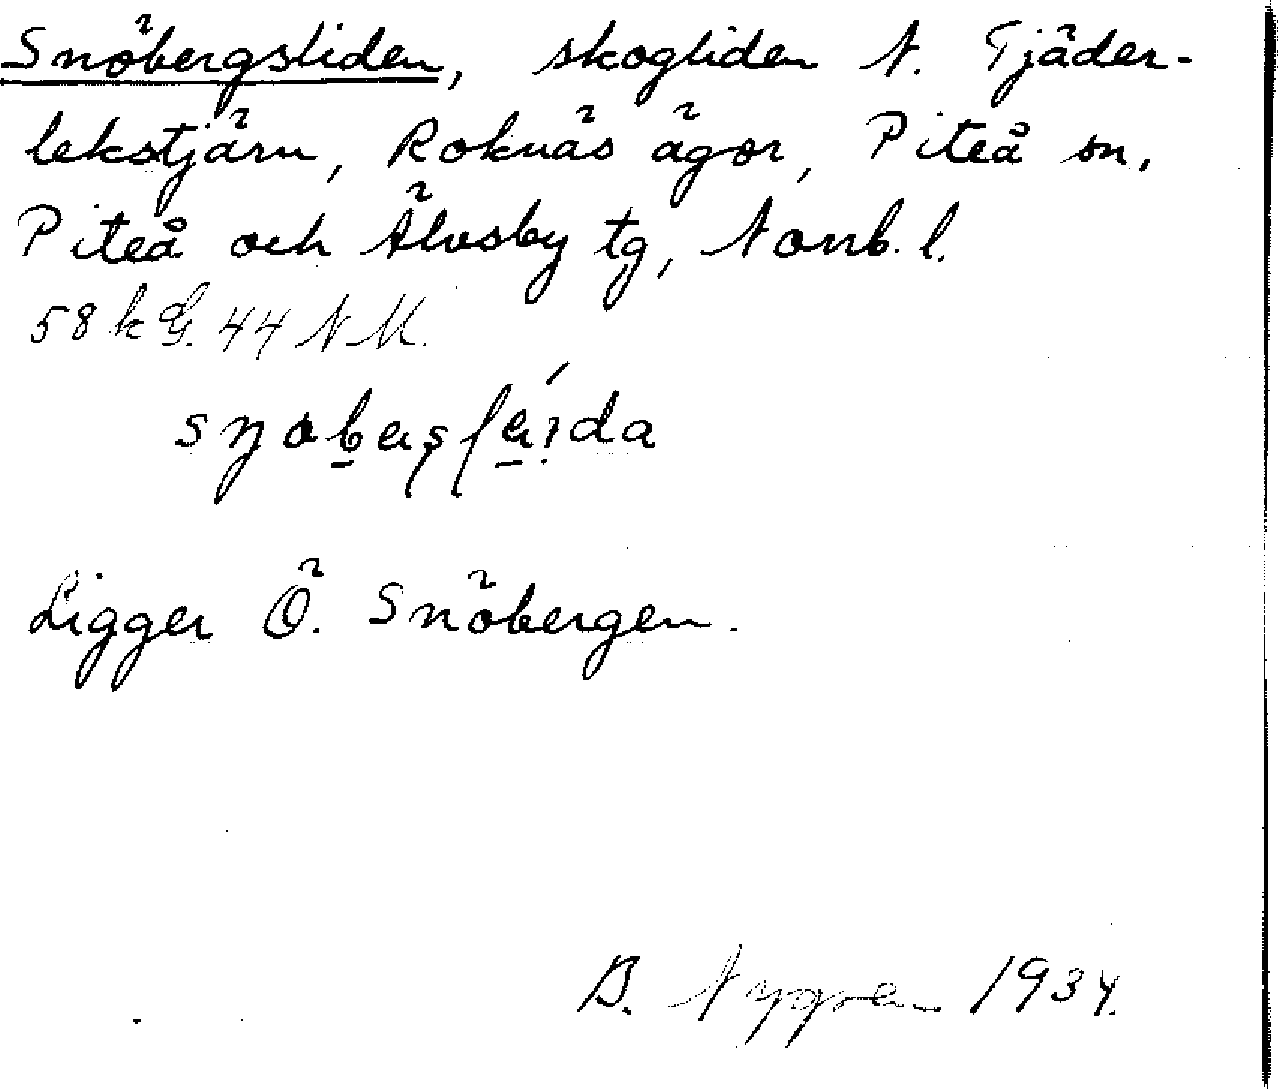 Snöbergsliden, skogliden N. Tjäder-
lekstjärn, Roknäs ägor, Piteå sn,
Piteå och Älvsby tg, Norrb. l.
58 k G. 44 N M.
Ligger Ö. Snöbergen.
B. Nygren 1934.